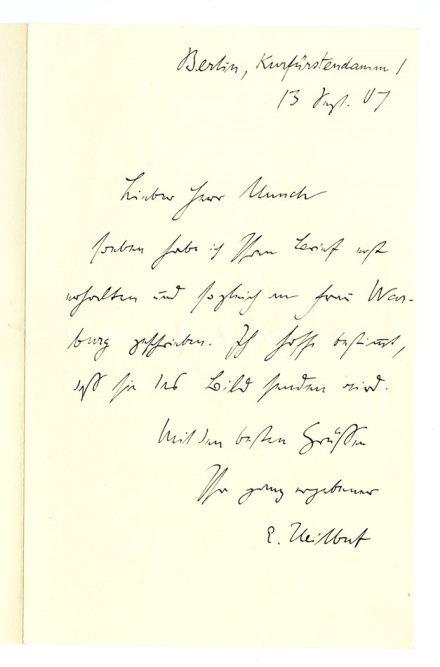 Berlin, Kurfürstendamm 1
13 Sept. 07
Lieber Herr Munch
soeben habe ich Ihren Brief erst
erhalten und sogleich an Frau War-
burg geschrieben. Ich hoffe bestimmt,
daß sie das Bild senden wird.
Mit den besten Grüßen
Ihr ganz ergebener
E. Heilbut